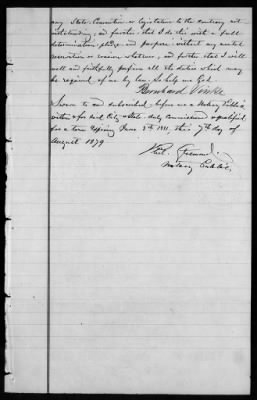 any State, Convention or legislation to the contrary not
withstanding; and further that I do this with a full
determination, pledge and purpose, without any mental
reservation or evasion whatsoever, and further that I will
well and faithfully perform all the duties which may
be required of me by law. So help me God.
Bernhard Vinke
Sworn to and subscribed before me a Notary Public
within & for said City & State duly commissioned & qualified
for a term expiring June 5th 1881, this 7th day of
August 1879
Notary Public.